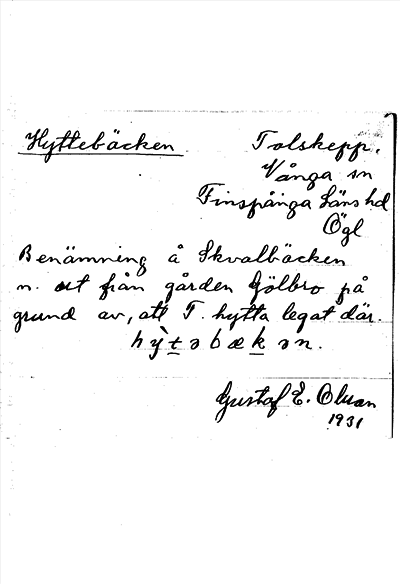 Hyttebäcken
Tolskepp,
Vånga sn
Finspånga Läns hd
Ögl
Benämning å Skvalbäcken
n. ut från gården Gölbro på
grund av, att T. hytta legat där.
hy̆t̠əbæk̠ən.
Gustaf E. Olsson
1931